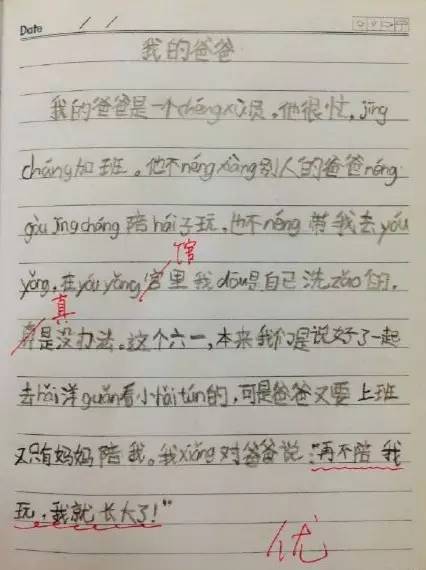 Date / /
我的爸爸
我的爸爸是一个chéngxù员，他很忙，jīng
cháng加班。他不néngxiàng别人的爸爸néng
gòu jīngcháng陪hái子玩，也不néng带我去yóu
yǒng，在yóuyǒng宫里我dōu是自己洗zǎo的，
馆
真
是没办法。这个六一，本来我们是说好了一起
去hǎi洋guǎn看小hǎi tún的，可是爸爸又要上班
又只有妈妈陪我。我xiǎng对爸爸说："再不陪我
玩，我就长大了！"
优